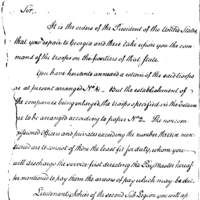 Sir,
It is the orders of the President of the United States
that you repair to Georgia and there take upon you the com
mand of the troops on the frontiers of that state.
You have herewith annexed a return of the said troops
as at present arranged No 1. But the establishment of
the companies being enlarged, the troops specified in the return
are to be arranged according to paper No 2. The non com
missioned Officers and privates exceeding the number therein men
tioned are to consist of those the least fit for duty, whom you
will discharge the service first directing the Pay Master
to pay them the arrears of pay which may be due.
Lieutenant of the second Sub Legion you will ap